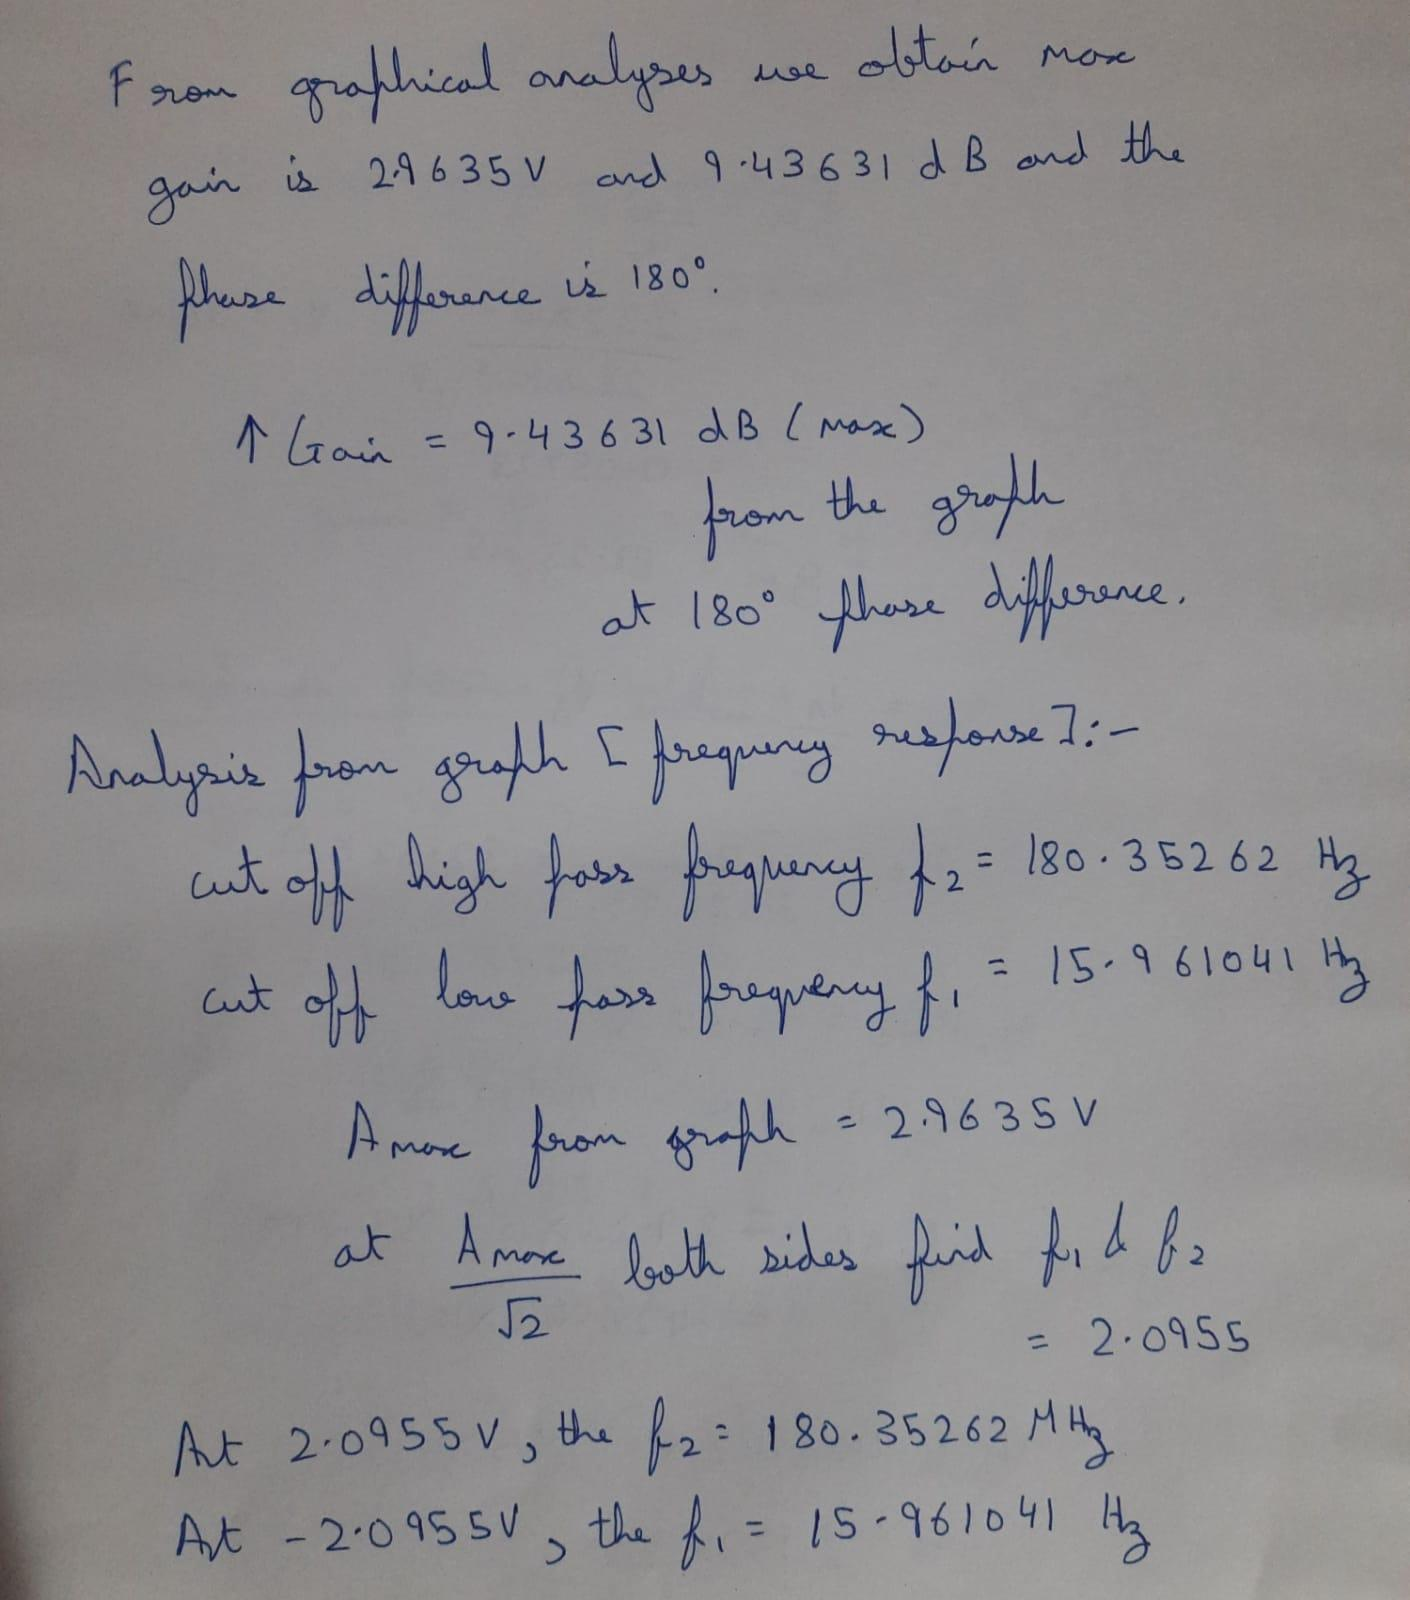 From graphical analyses we obtain max
gain is 2.9635V and 9.43631 dB and the
phase difference is 180°.
↑ Gain = 9.43631 dB (max)
from the graph
at 180° phase difference.
Analysis from graph [frequency response]:-
cut off high pass frequency f₂ = 180.35262 Hz
cut off low pass frequency f₁ = 15.961041 Hz
Amax from graph = 2.9635V
at Amax/√2 both sides find f₁ & f₂
= 2.0955
At 2.0955V, the f₂ = 180.35262 MHz
At -2.0955V, the f₁ = 15.961041 Hz